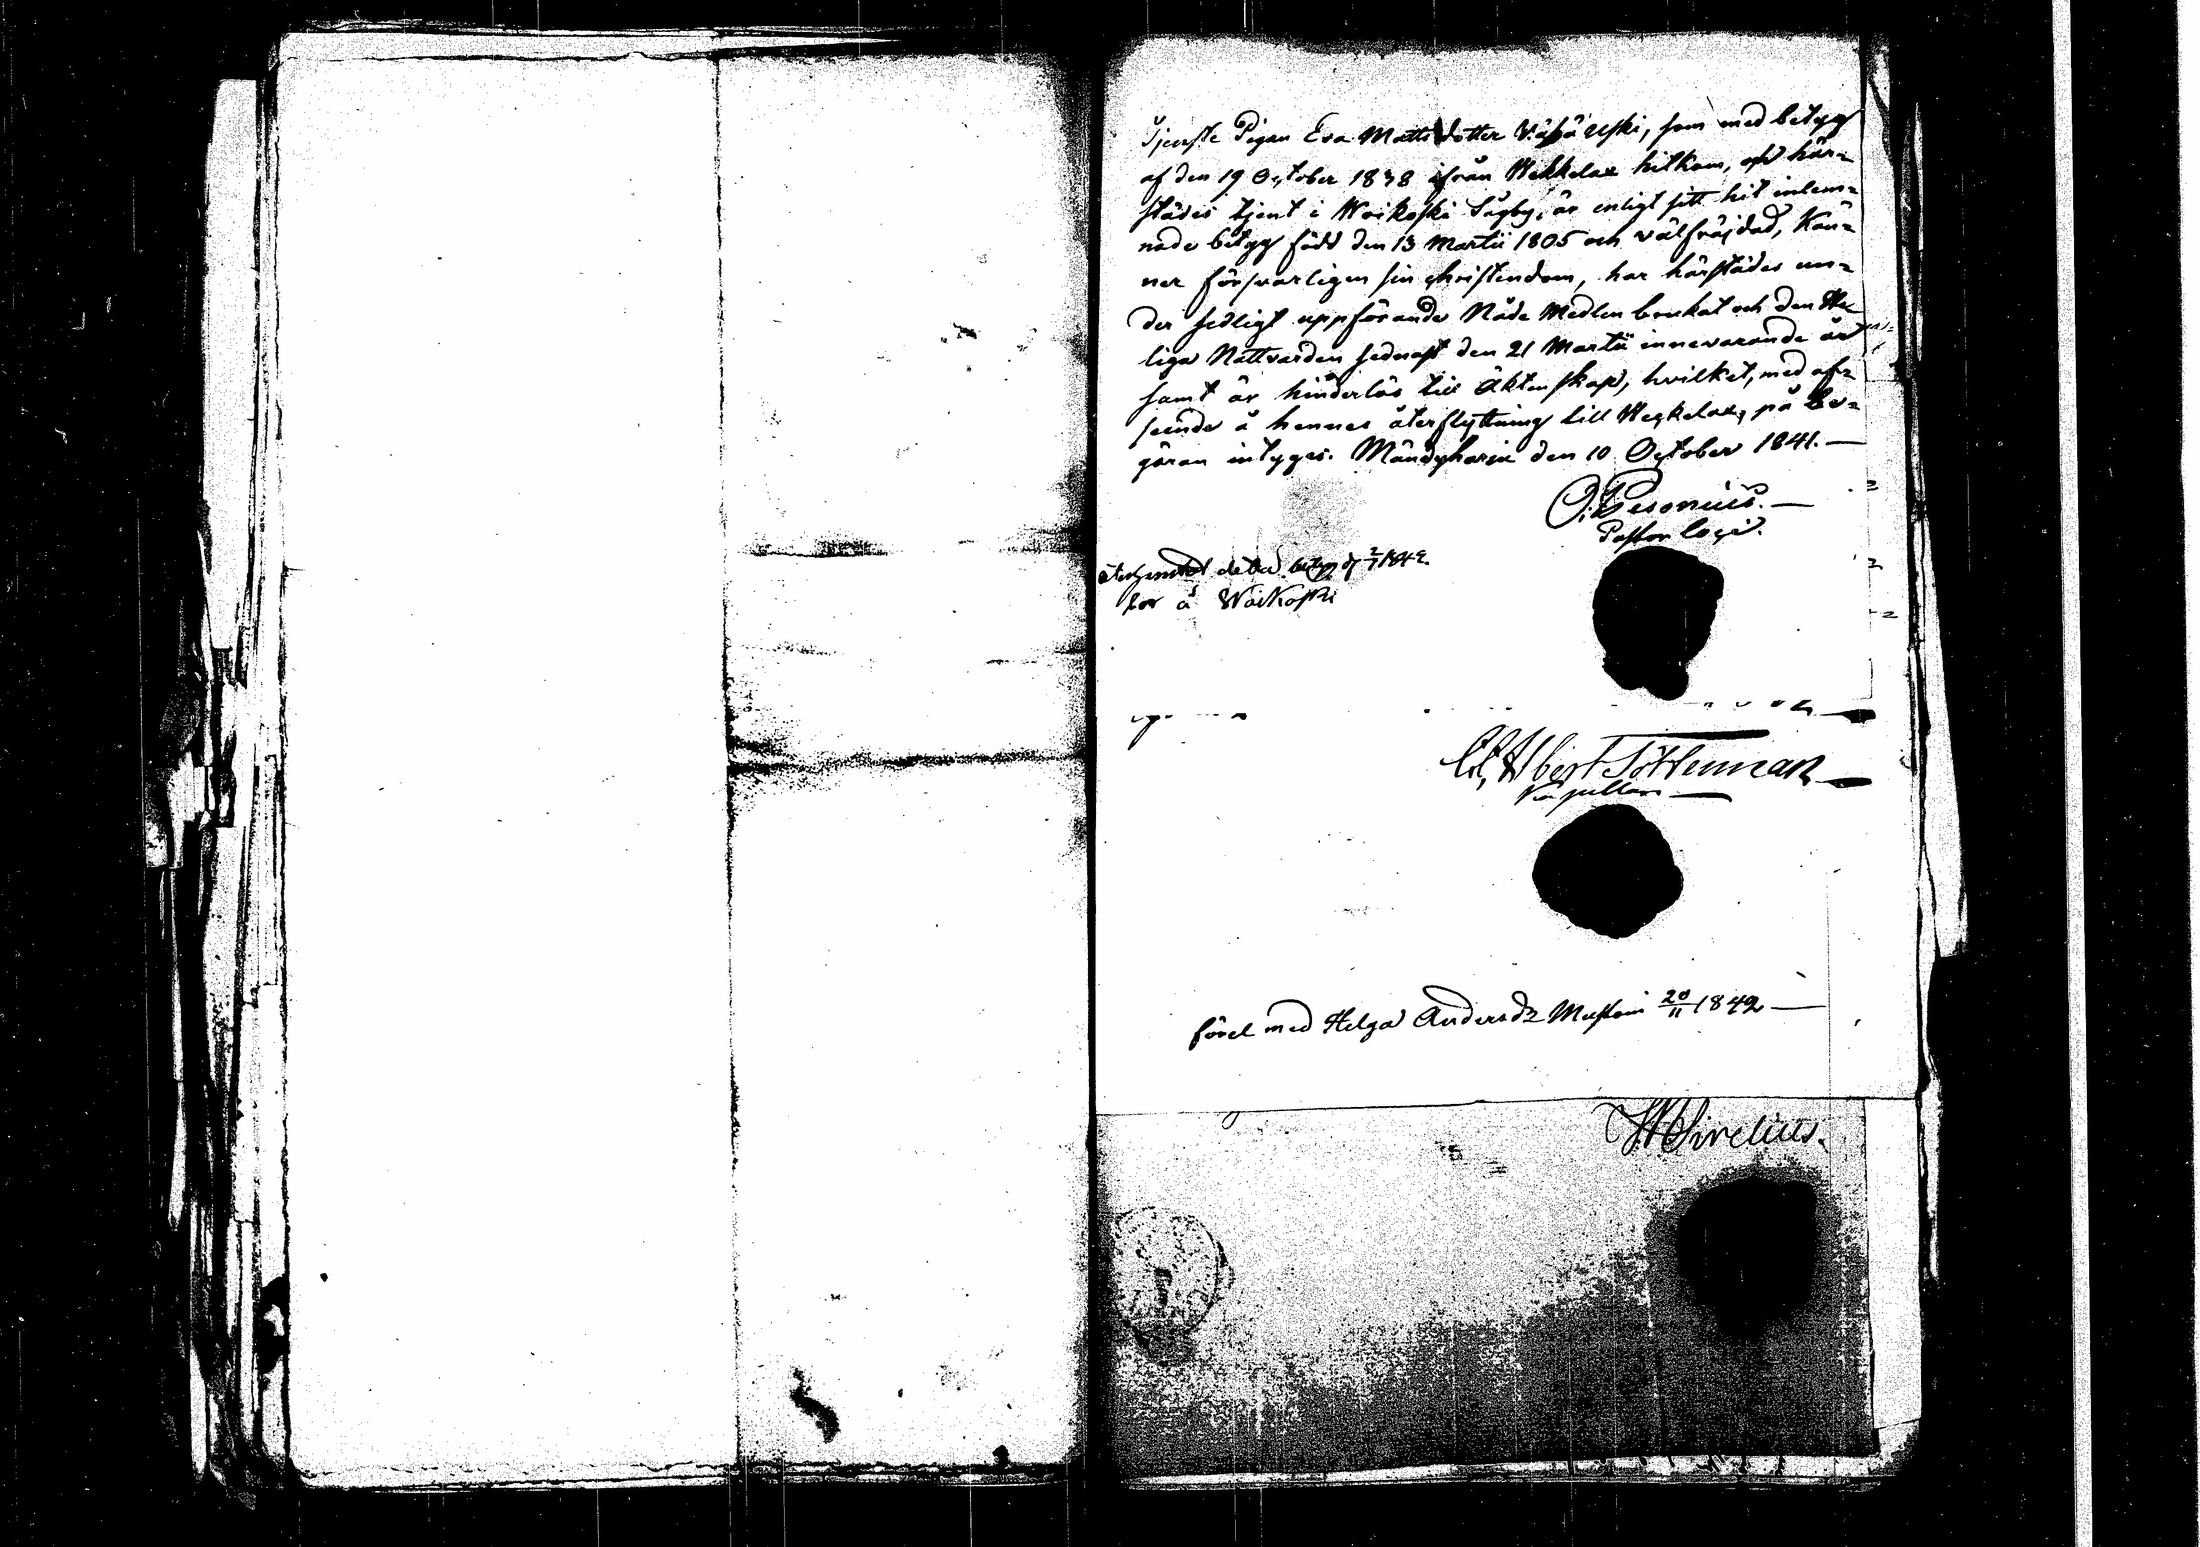 Tjenste Pigan Eva Mattsdotter Väfväreski, som med betyg
af den 19 October 1838 ifrån Wekkelax hitkom, och här-
städes tjent i Woikoski Sågby, är enligt sitt hit inlem-
nade betyg född den 13 Martii 1805 och välfräjdad, Kän-
ner försvarligen sin christendom, har härstädes un-
der sedligt uppförande Nåde Medlen brukat och den He-
liga Nattvarden sednast den 21 Martii innevarande år
samt är hinderlös till Äktenskap, hvilket, med af-
seende å hennes återflyttning till Weckelax, på Be-
gäran intygas. Mändyharju den 10 October 1841.—
O. Pesonius.—
Pastor loci.
betyg 1842.
å Woikoski
Albert Tötterman
Kapellan
med Helga Andersdr 20/11 1842—
Sirelius.